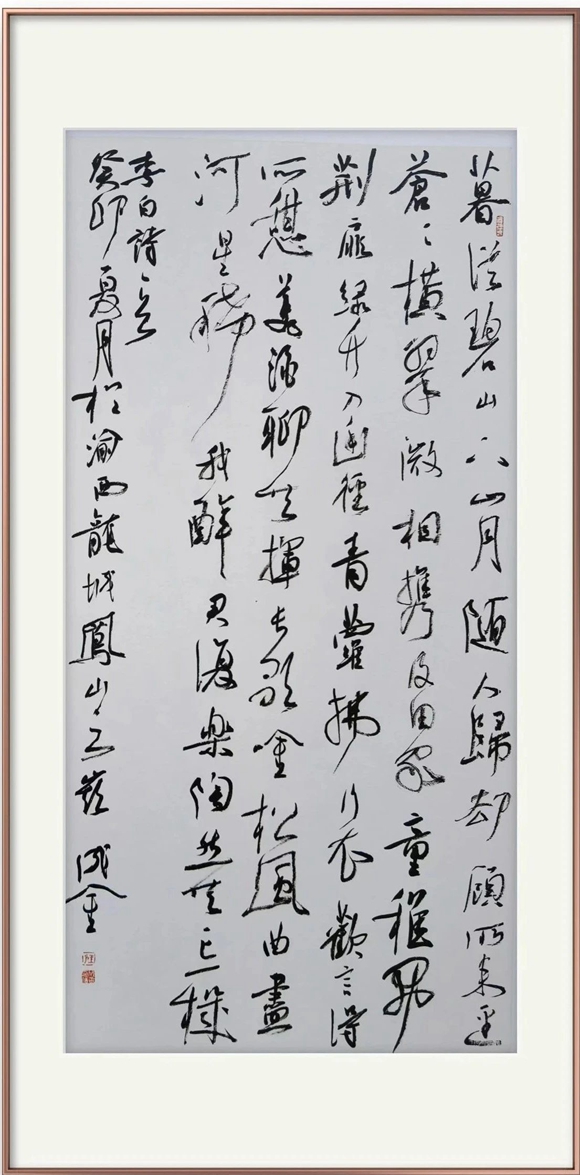 暮從碧山下山月隨人歸却顧所來逕
蒼々橫翠微相携及田家童稚開
荆扉綠竹入幽徑青蘿拂行衣歡言得
所憩美酒聊共揮長歌吟松風曲盡
河星稀我醉君復樂陶然共忘機
李白詩一首
癸卯夏月於渝西龍城鳳山之巔成金